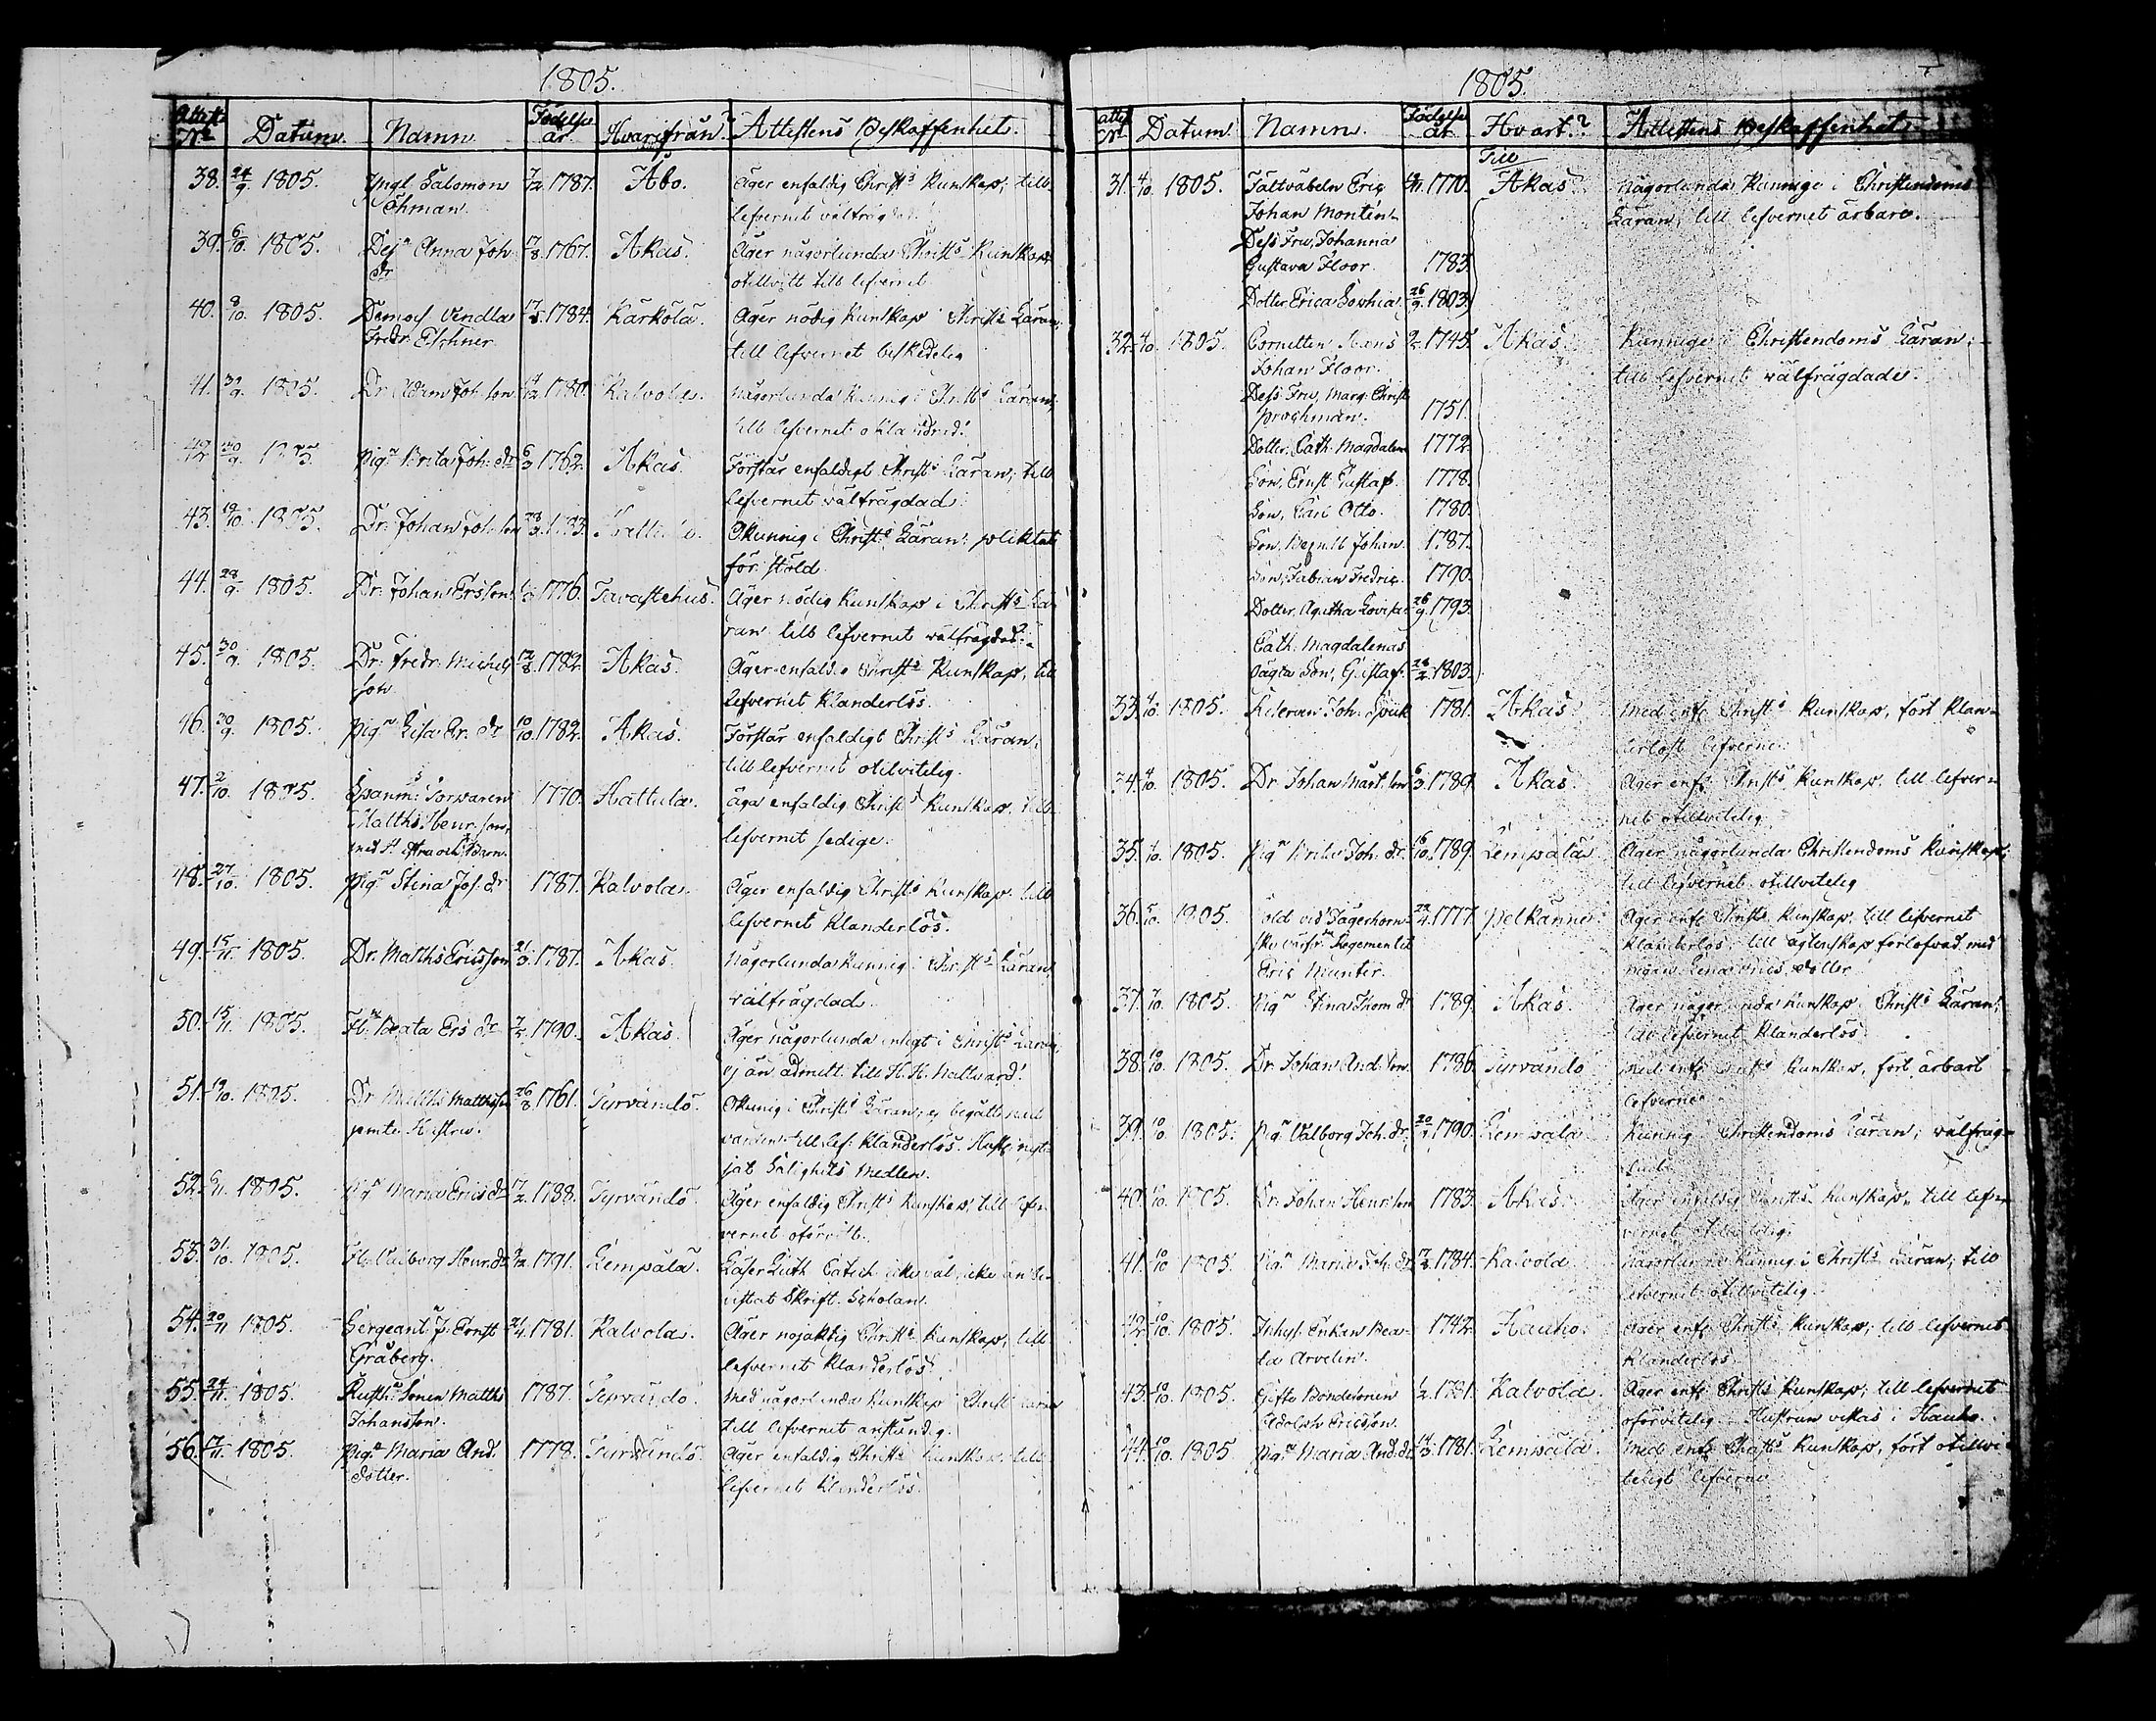 1805.
Attest. No Datum. Namn. Födelse år. Hvarifrån? Attestens Beskaffenhet.
38. 24/9 1805. Yngl. Salomon 7/12 1787. Åbo. Äger enfaldig Christs kunskap; till
Öhman. lefvernet välfrägdad.
39. 6/10. 1805. Dejn Anna Joh. 17/8. 1767. Akas. Äger någorlunda Christs kunskap
dr otillvitt till lefvernet
40. 8/10. 1805. Demois. Vendla 17/5. 1784. Kärkölä. Äger nödig kunskap i Christs Läran;
Fredr. Elschner till lefvernet beskedelig
41. 30/9. 1805. Dr. Adam Joh. son 1780. Kalvola. Någorlunda kunnig i Christs Läran,
till lefvernet oklandrad.
42. 30/9. 1805. Pign Brita Joh. dr 6/3 1762. Akas. Förstår enfaldigt Christs Läran; till
lefvernet välfrägdad.
43. 19/10. 1805. Dr. Johan Joh. son Okunnig i Christs Läran; pliktat
för stöld.
44. 28/9. 1805. Dr. Johan Ersson 1776. Tavastehus. Äger nödig kunskap i Christs Lä-
ran till lefvernet välfrägdad.
45. 30/9. 1805. Dr. Fredr. Michels 12/8. 1782. Akas. Äger enfaldig Christs kunskap, till
son lefvernet klanderlös.
46. 30/9. 1805. Pign Lisa Er. dr 10/10. 1782. Akas. Förstår enfaldigt Christs Läran;
till lefvernet otilvitelig.
47. 2/10. 1805. Spanm. Torparen 1770. Hattula. äga enfaldig Christs kunskap, till
Matths Henr. son, lefvernet sedige.
med hustru och barn.
48. 27/10. 1805. Pign Stina Jos. dr 1787. Kalvola. Äger enfaldig Christs kunskap till
lefvernet klanderlös.
49. 15/11. 1805. Dr. Matths Ericsson 21/3. 1787. Akas. Någorlunda kunnig i Christs Läran,
välfrägdad.
50. 15/11. 1805. Fl. Beata Ers dr 1790. Akas. Äger någorlunda insigt i Christs Läran,
ej än admitt. till H. H. Nattvard.
51. 1805. Dr. Matths Matthsson 26/8 1761. Tyrvändö. Okunnig i Christs Läran, ej begått
jemte Hustru. till lef. klanderlös. Hust.
jat Salighets Medlen.
52. 1805. Pign Maria Erics dr 17/2. 1788. Tyrvändö. Äger enfaldig Christs kunskap, till lef-
vernet oförvitt.
53. 31/10. 1805. Fl. Valborg Henr. dr 1791. Lempälä. Läser Luth. Catech. icke väl, icke än be-
vistat Skrift. Scholan.
54. 20/11 1805. Sergeant J. Ernst 21/4. 1781. Kalvola. Äger nöjaktig Christs kunskap, till
Gråberg. lefvernet klanderlös.
55. 24/11. 1805. Rusth. Sonen Matths 1787. Tyrvändö. Med någorlunda kunskap i Christ Läran
Johansson. till lefvernet anständig.
56. 17/11. 1805. Pign Maria And. 1778. Tyrvändö. Äger enfaldig Christs kunskap, till
dotter. lefvernet klanderlös.
1805.
Attest No Datum. Namn. Födelse år Hvart? Attestens Beskaffenhet.
Till
31. 4/10 1805. Fältväbeln Eric 1770. Akas. Någorlunda kunnige i Christendoms
Johan Montén Läran, till lefvernet ärbare.
Dess Fru, Johanna
Gustava Floor. 1783.
Dotter Erica Sophia. 26/9. 1803.
32. 4/10. 1805. Cornetten Hans 1745. Akas. Kunnige i Christendoms Läran;
Johan Floor. till lefvernet välfrägdade.
Dess Fru, Marg. Christ.
Prochman. 1751.
Dotter, Cath. Magdalena 1772.
Son, Ernst Gustaf. 1778.
Son, Carl Otto. 1780.
Son, Johan. 1787.
Son, Fabian Fredric. 1790.
Dotter, Agatha Lovisa. 26/9. 1793.
Cath. Magdalenas
oägta Son, Gustaf. 28/2. 1803.
33. 4/10. 1805. Joh. 1781. Akas. Med enf. Christs kunskap, fört klan-
derlöst lefverne.
34. 4/10. 1805. Dr. Johan Mårt. son 6/3. 1789. Akas. Äger enf. Christs kunskap, till lefver-
net otillvitelig.
35. 1805. Pign Brita Joh. dr. 16/10. 1789. Lempälä. Äger någorlunda Christendoms kunskap,
till lefvernet otillvitelig
36. 5/10. 1805. Sold. vid Fägerhorn- 1777. Pelkänne. Äger enf. Christs kunskap, till lefvernet
ska värfv. Regementet klanderlös; till ägtenskap förlofvad med
Eric Munter. pigan Lena Erics dotter
37. 7/10 1805. Pign Stina Thom. dr 1789. Akas. Äger någorlunda kunskap i Christs Läran;
till lefvernet klanderlös
38. 10/10. 1805. Dr. Johan And. son. 1786. Tyrvändö Med enf. Christs kunskap, fört ärbart
lefverne.
39. 10/10 1805. Pign Valborg Joh. dr. 1790. Lempälä. Kunnig i Christendoms Läran; välfräg-
dad.
40. 10/10. 1805. Dr. Johan Henr. son 1783. Akas. Äger enfaldig Christs kunskap, till lefver-
vernet otillvitelig.
41. 10/10 1805. Pign Maria Joh. dr 17/2. 1784. Kalvola Någorlunda kunnig i Christs Läran; till
lefvernet otillvitelig.
42. 10/10. 1805. Inhys. Enkan Bea- 1742. Hauho. Äger enf. Christs kunskap; till lefvernet
ta Arvelin. klanderlös.
43. 10/10. 1805. Gifte Bondesonen 1781. Kalvola. Äger enf. Christs kunskap; till lefvernet
Adolph Ericsson. oförvitelig. Hustrun vikas i Hauho.
44. 10/10. 1805 Pign Maria And. dr. 14/3. 1781. Lempälä. Med enf. Christs kunskap, fört otillvi-
teligt lefverne